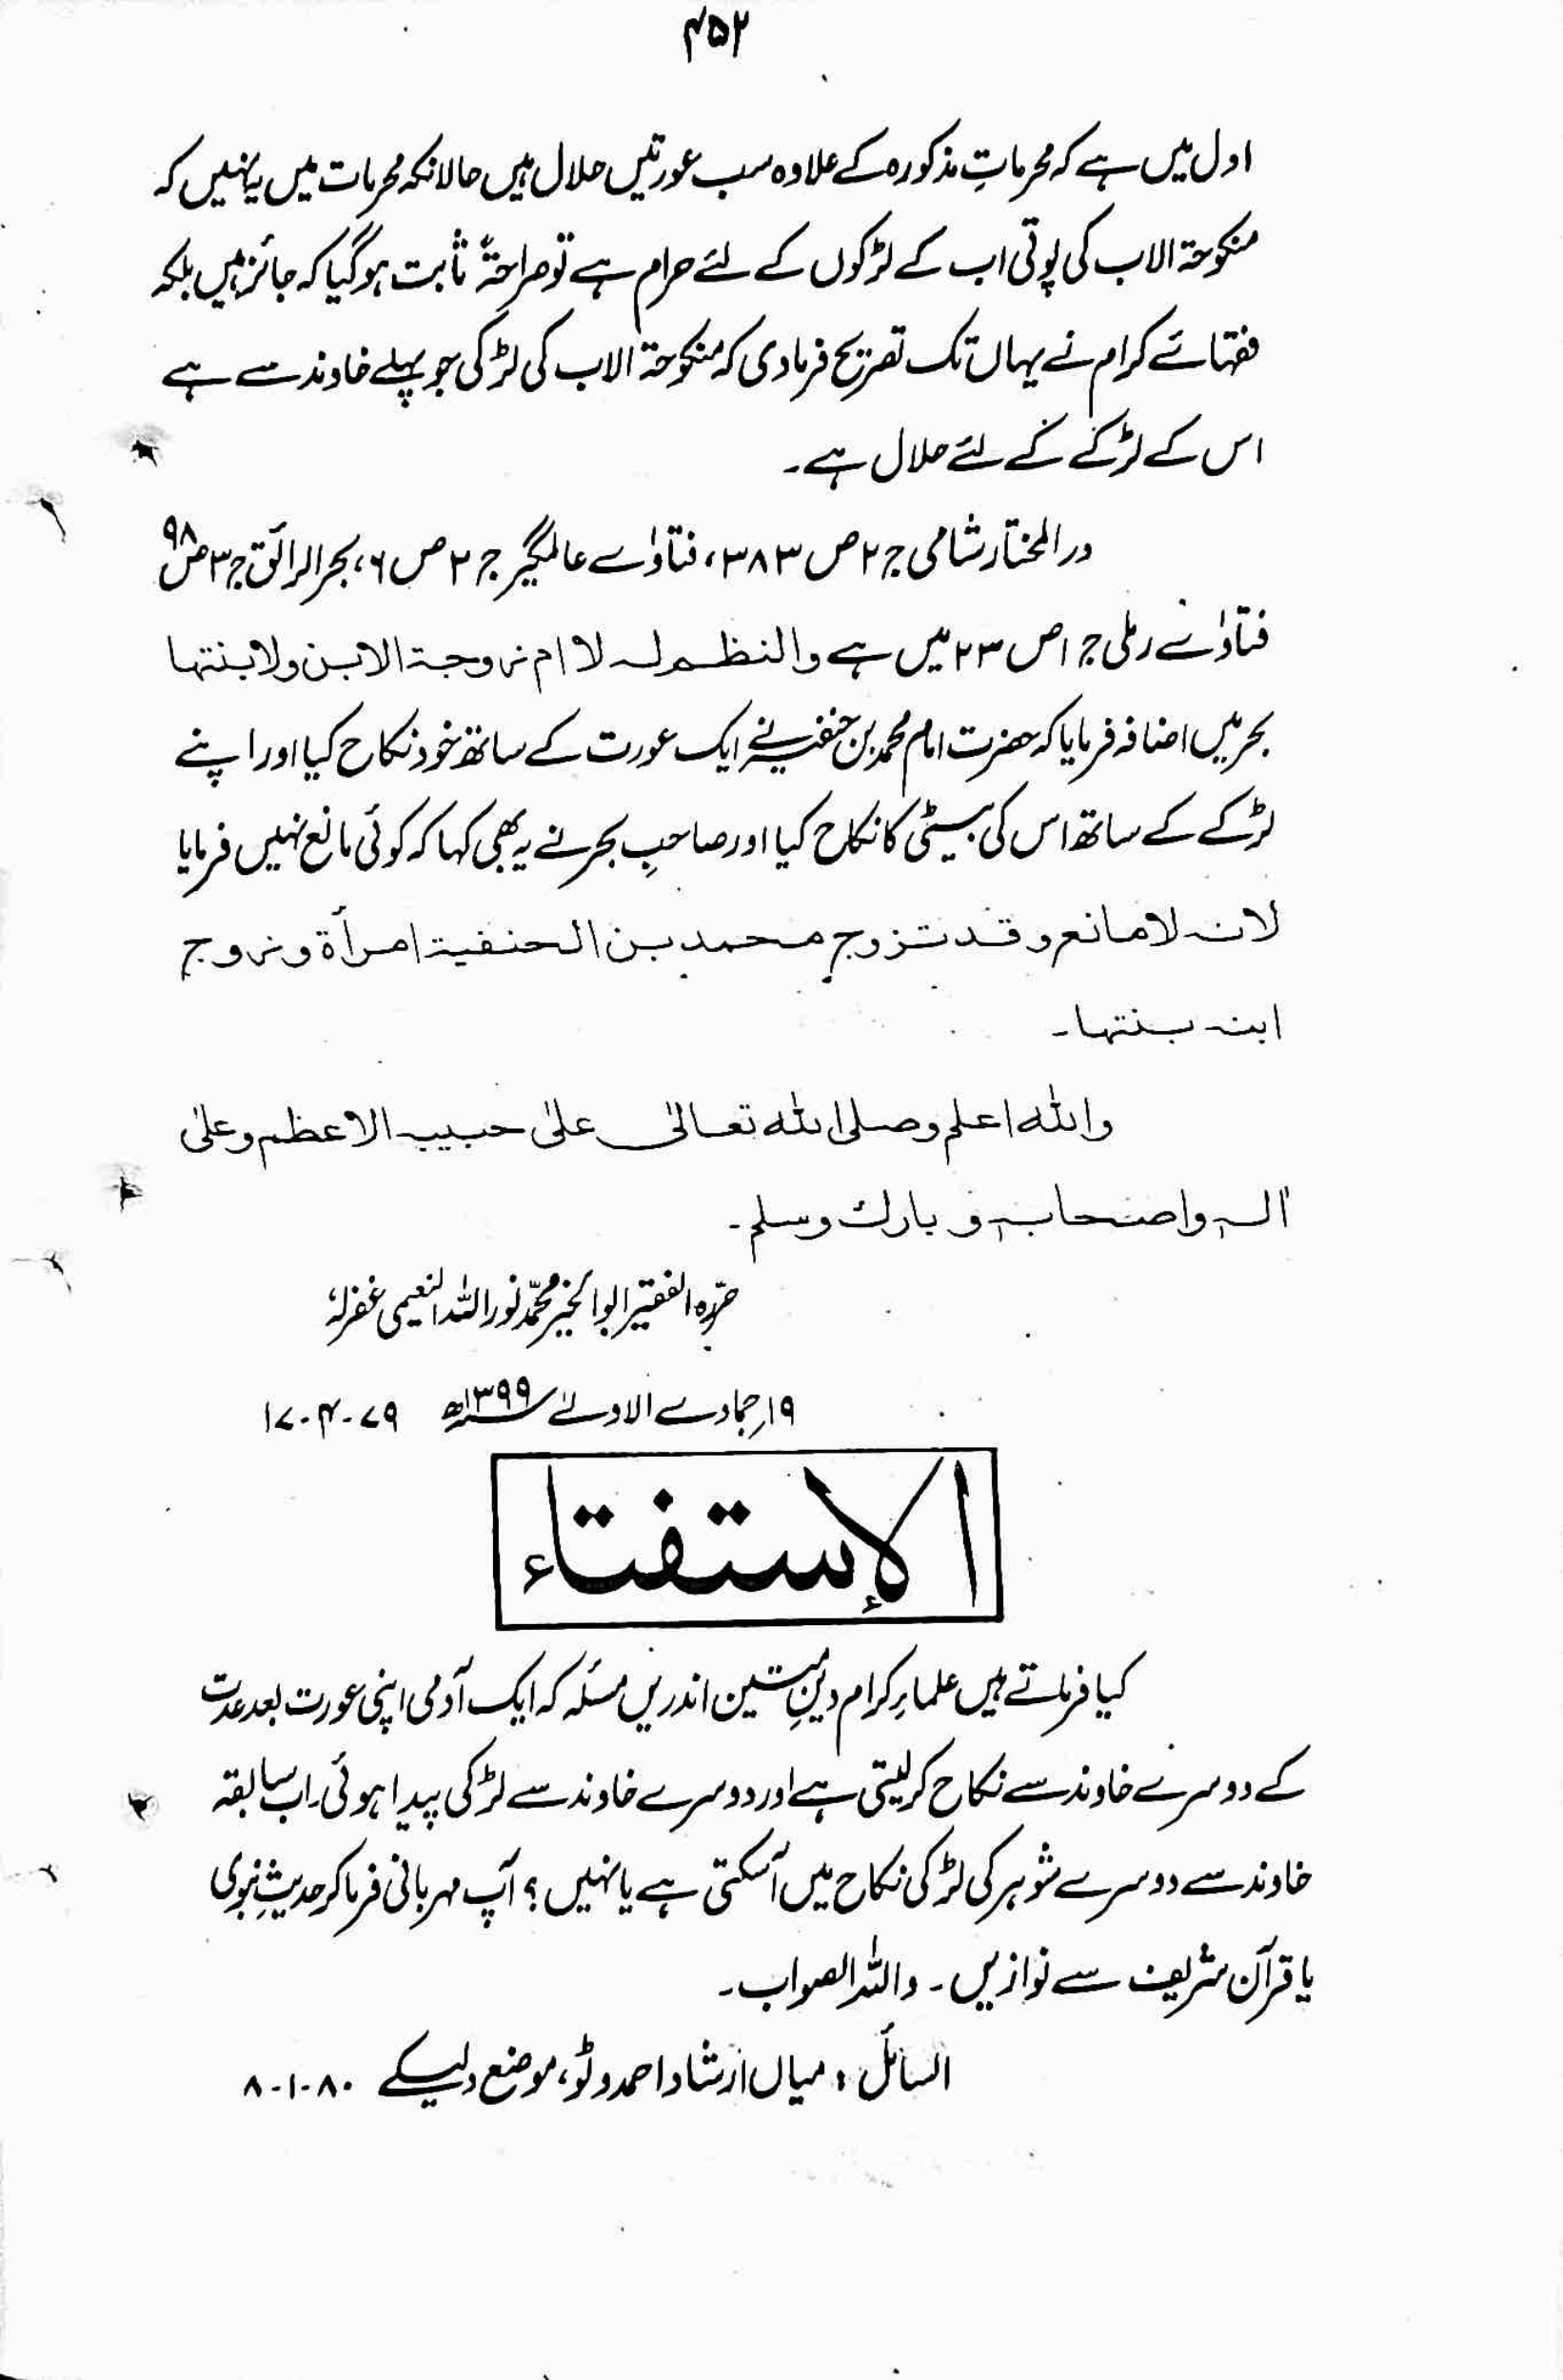 ۴۵۲
اول میں ہے کہ محرماتِ مذکورہ کے علاوہ سب عورتیں حلال ہیں حالانکہ محرمات میں یہ نہیں کہ
منکوحۃ الاب کی پوتی اب کے لڑکوں کے لئے حرام ہے تو صراحۃً ثابت ہوگیا کہ جائز ہیں بلکہ
فقہائے کرام نے یہاں تک تصریح فرمادی کہ منکوحۃ الاب کی لڑکی جو پہلے خاوند سے ہے
اس کے لڑکے کے لئے حلال ہے۔
در المختار شامی ج ۲ ص ۳۸۳، فتاوٰے عالمگیر ج ۲ ص ۶، بحر الرائق ج ۳ ص ۹۸
فتاوٰے رملی ج ۱ ص ۲۳ میں ہے والنظم لہ لا ام زوجۃ الابن ولا بنتہا
بحر میں اضافہ فرمایا کہ حضرت امام محمد بن حنفیہ نے ایک عورت کے ساتھ خود نکاح کیا اور اپنے
لڑکے کے ساتھ اس کی بیٹی کا نکاح کیا اور صاحبِ بحر نے یہ بھی کہا کہ کوئی مانع نہیں فرمایا
لانہ لا مانع وقد تزوج محمد بن الحنفیۃ امرأۃ وزوج
ابنہ بنتہا۔
واللہ اعلم وصلی اللہ تعالیٰ علیٰ حبیبہ الاعظم وعلیٰ
آلہٖ واصحابہٖ و بارك وسلم۔
حرّرہ الفقیر ابوالخیر محمّد نور اللہ النعیمی غفرلہٗ
۱۹؍ جمادے الاولےٰ ۱۳۹۹ھ ۱۷-۴-۷۹
الاستفتاء
کیا فرماتے ہیں علماءِ کرام دینِ متین اندریں مسئلہ کہ ایک آدمی اپنی عورت بعد عدت
کے دوسرے خاوند سے نکاح کرلیتی ہے اور دوسرے خاوند سے لڑکی پیدا ہوئی۔ اب سابقہ
خاوند سے دوسرے شوہر کی لڑکی نکاح میں آسکتی ہے یا نہیں؟ آپ مہربانی فرما کر حدیثِ نبوی
یا قرآن شریف سے نوازیں۔ واللہ الصواب۔
السائل: میاں ارشاد احمد وٹو، موضع دلیکے ۸-۱-۸۰